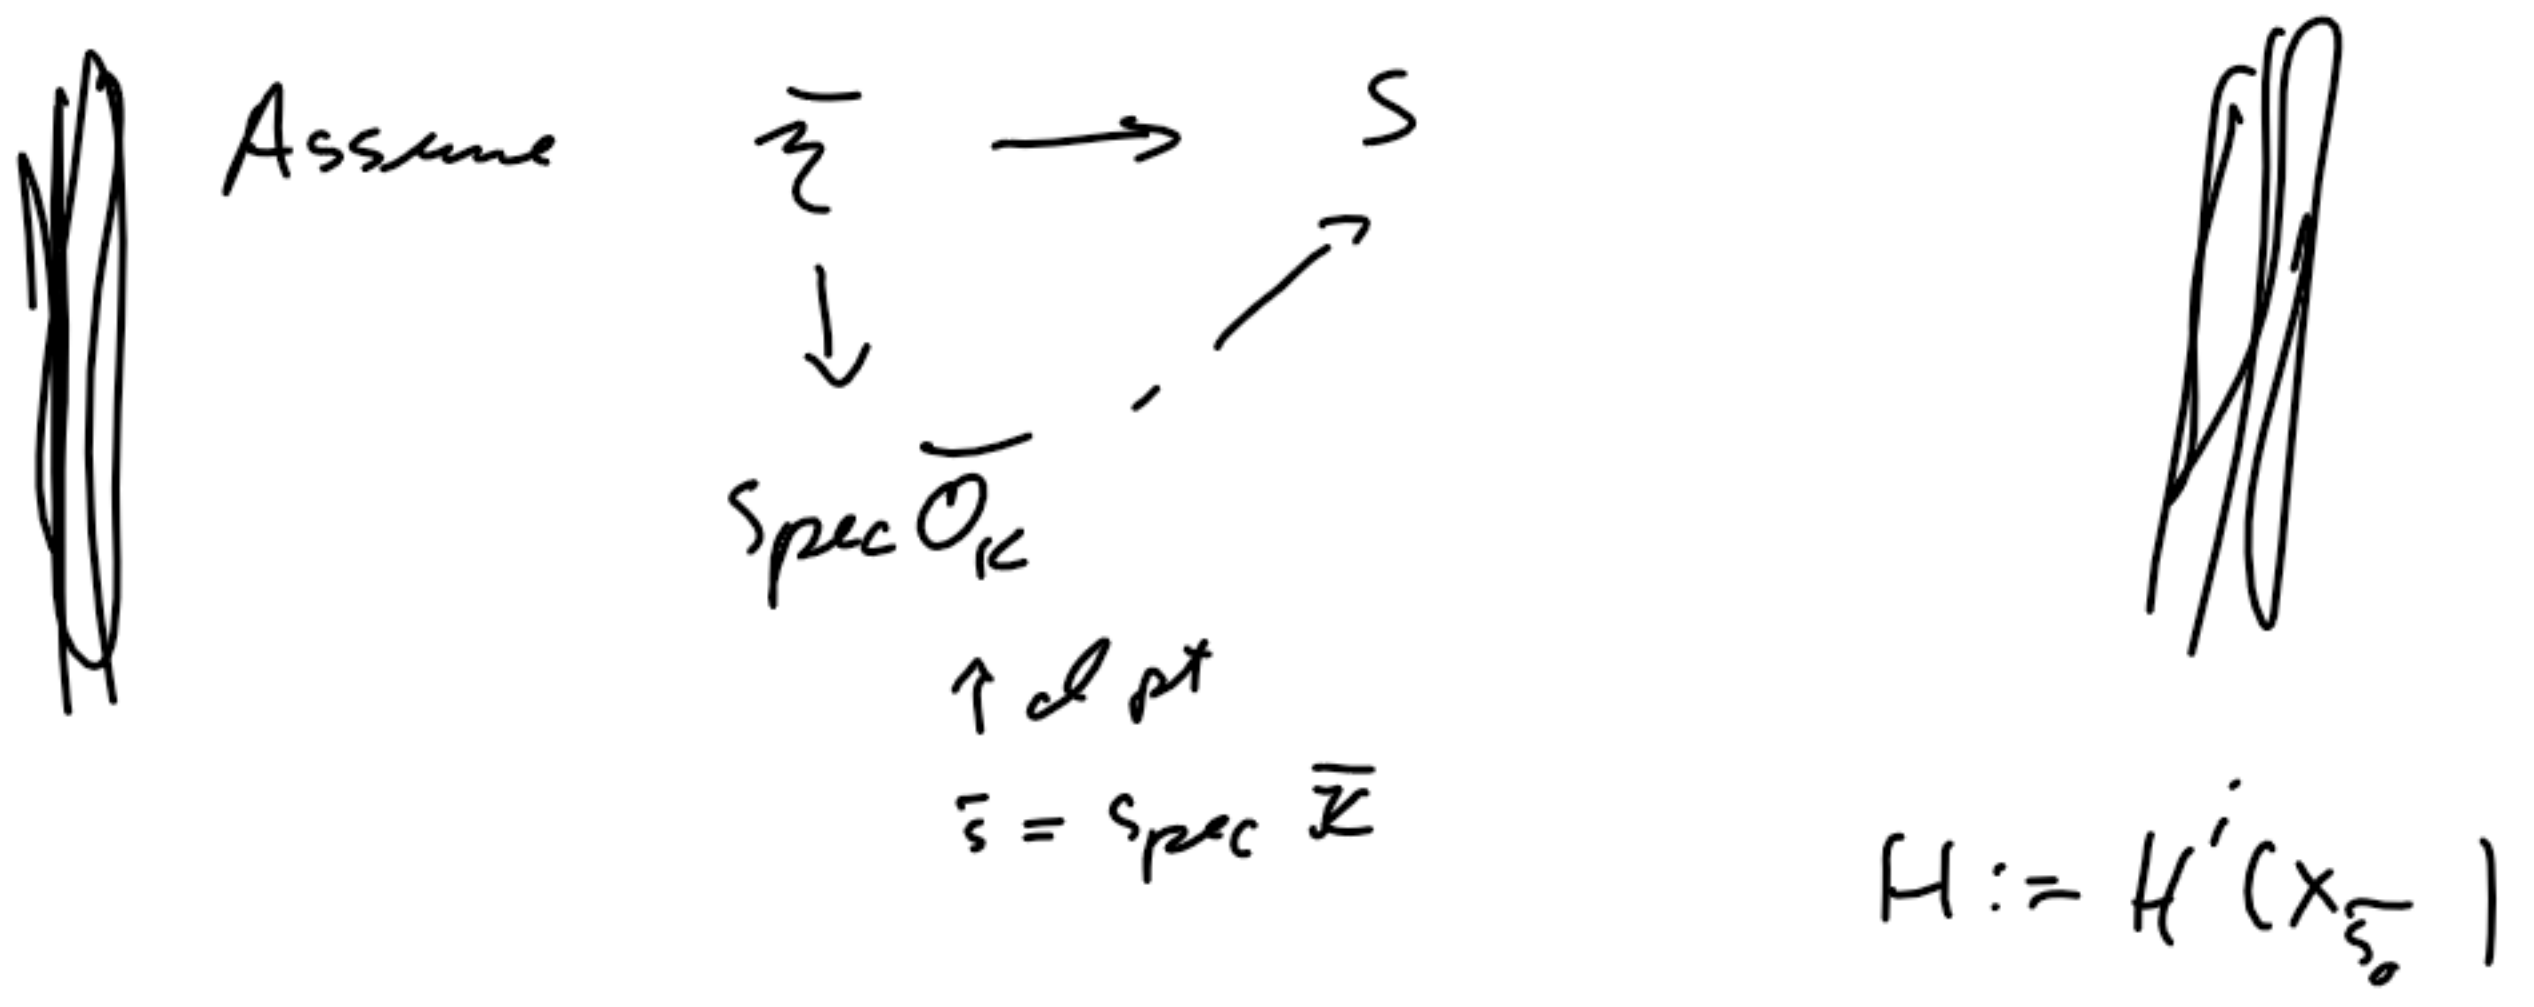 Assume ξ̄ → S
↓
Spec Ō_K
↑ cl pt
s̄ = Spec k̄
H := Hⁱ(X_s̄₀ )